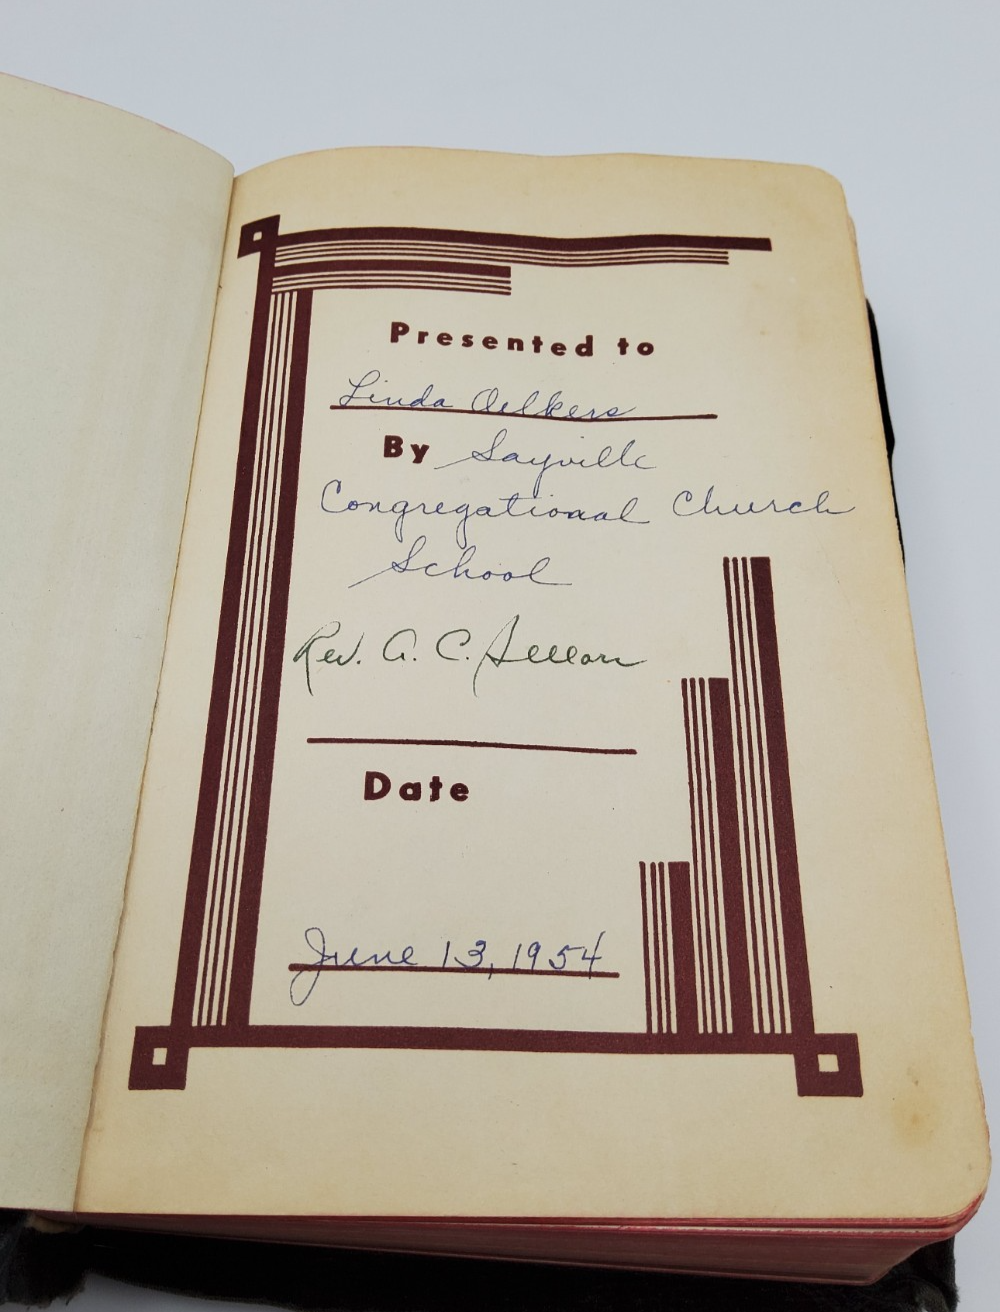 Presented to
Linda Oelkers
By Sayville
Congregational Church
School
Rev. A. C.
Date
June 13, 1954